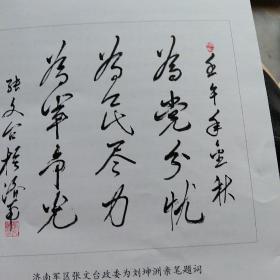 壬午年金秋
为党分忧
为民尽力
为军争光
张文台
济南军区张文台政委为刘坤洲亲笔题词